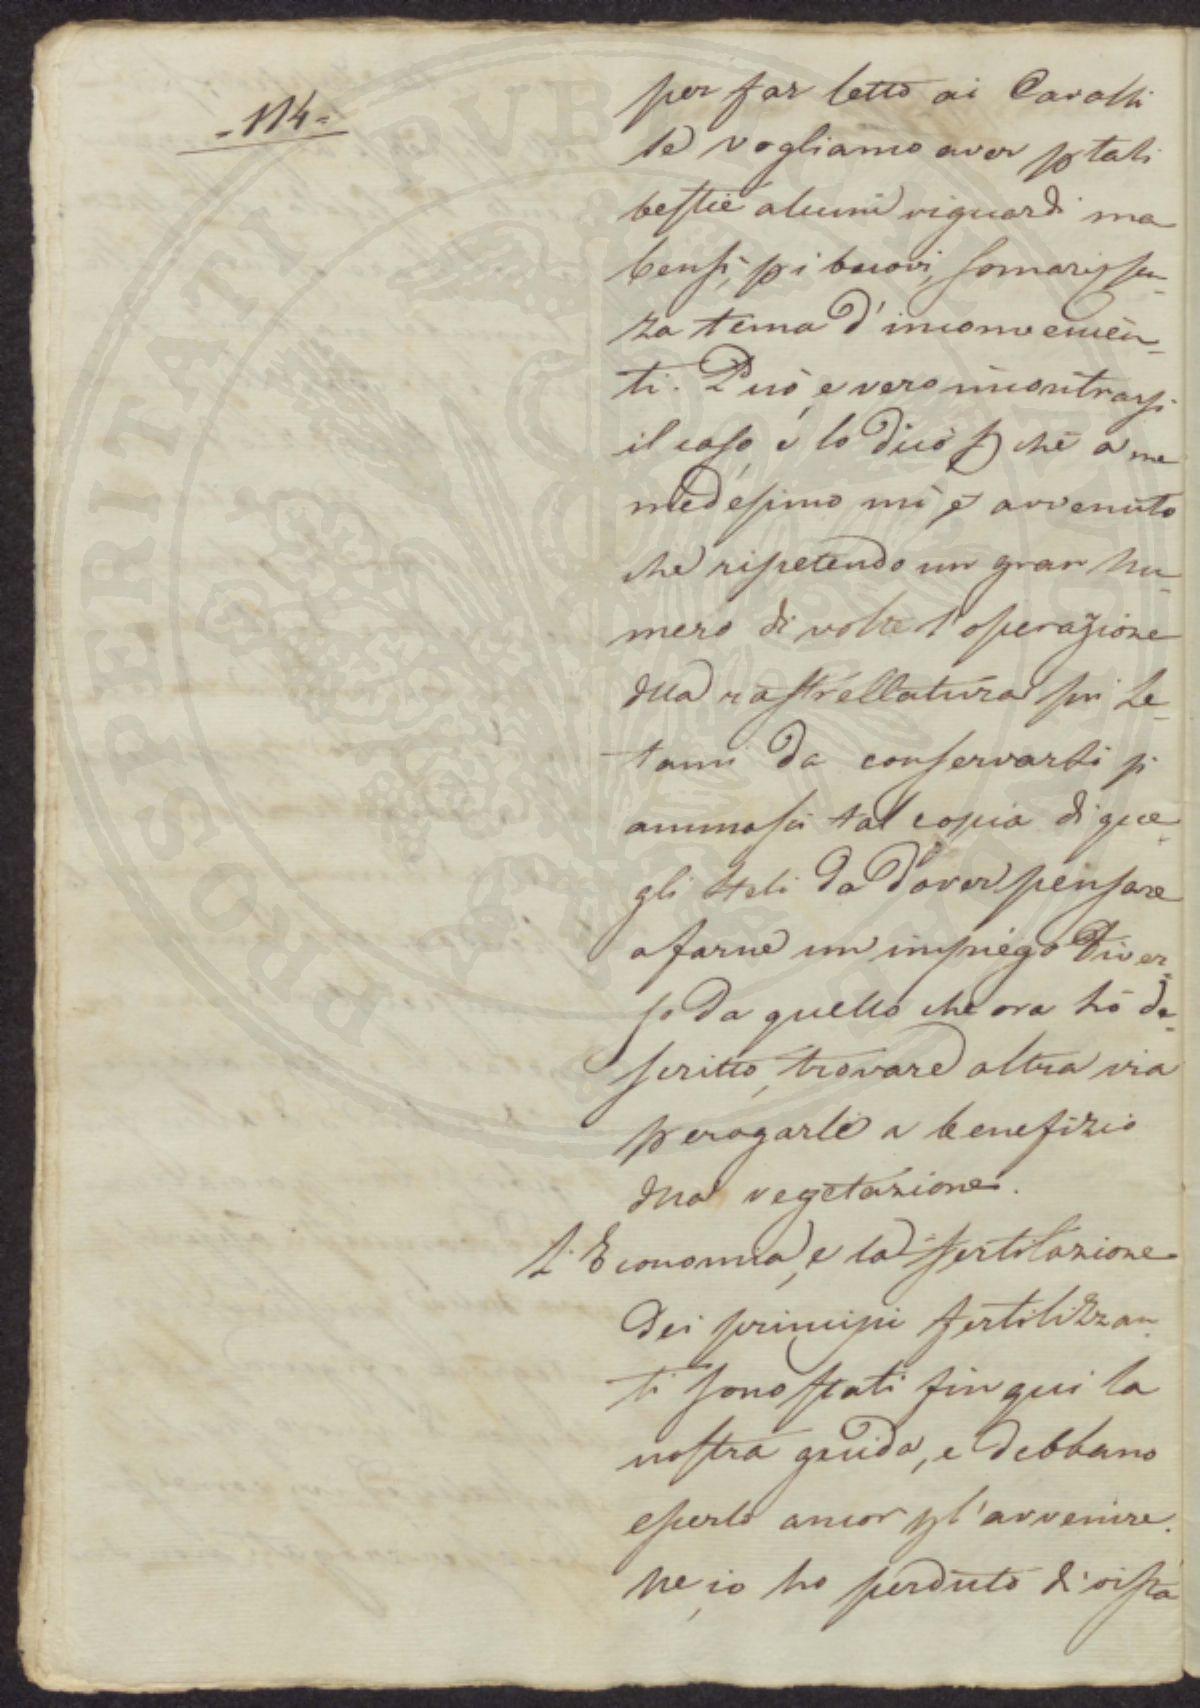 -114-
per far letto ai Cavalli
se vogliamo aver p tali
bestie alcuni riguardi ma
bensì, p i buovi, somari, sen-
za tema d'inconvenien-
ti. Può, e vero, incontrarsi
il caso, e lo dico p chè a me
medesimo mi è avvenuto
che ripetendo un gran nu-
mero di volte l'operazione
della rastrellatura sui Le-
tami da conservarsi si
ammassi tal copia di que-
gli steli da dover pensare
a farne un impiego diver-
so da quello che ora hò de-
scritto, trovare altra via
p erogarli a benefizio
della vegetazione.
L'Economia, e la fertilazione
dei principi fertilizzan-
ti sono stati fin qui la
nostra guida, e debbano
esserlo ancor p l'avvenire.
Ne, io ho perduto di vista
PUBLICAE
PROSPERITATI